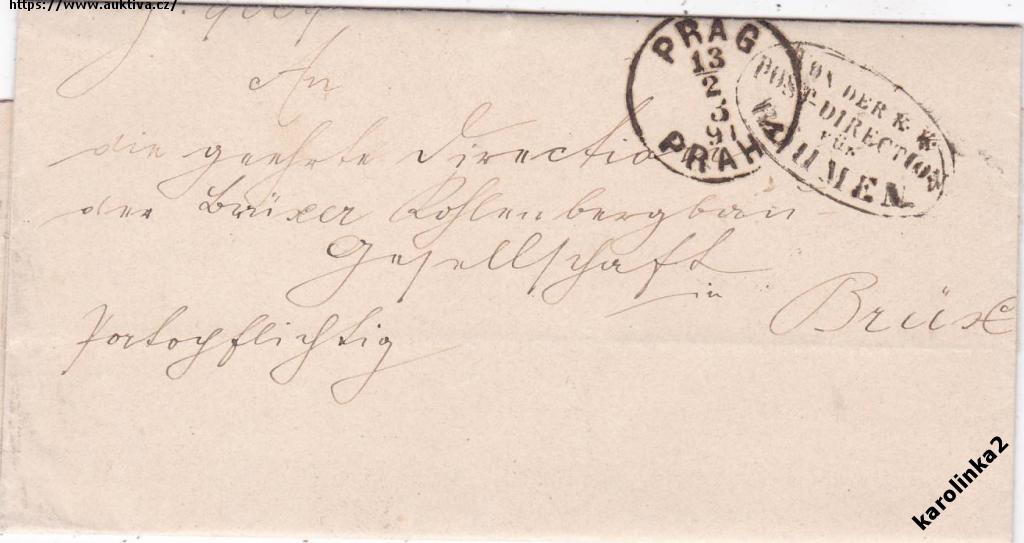 https://www.auktiva.cz/
An
die geehrte Direction
der Brüxer Kohlenbergbau-
Gesellschaft
in Brüx
Portopflichtig
PRAG
13
2
3
91
PRAHA
VON DER K. K.
POST-DIRECTION
FÜR
BÖHMEN
karolinka2